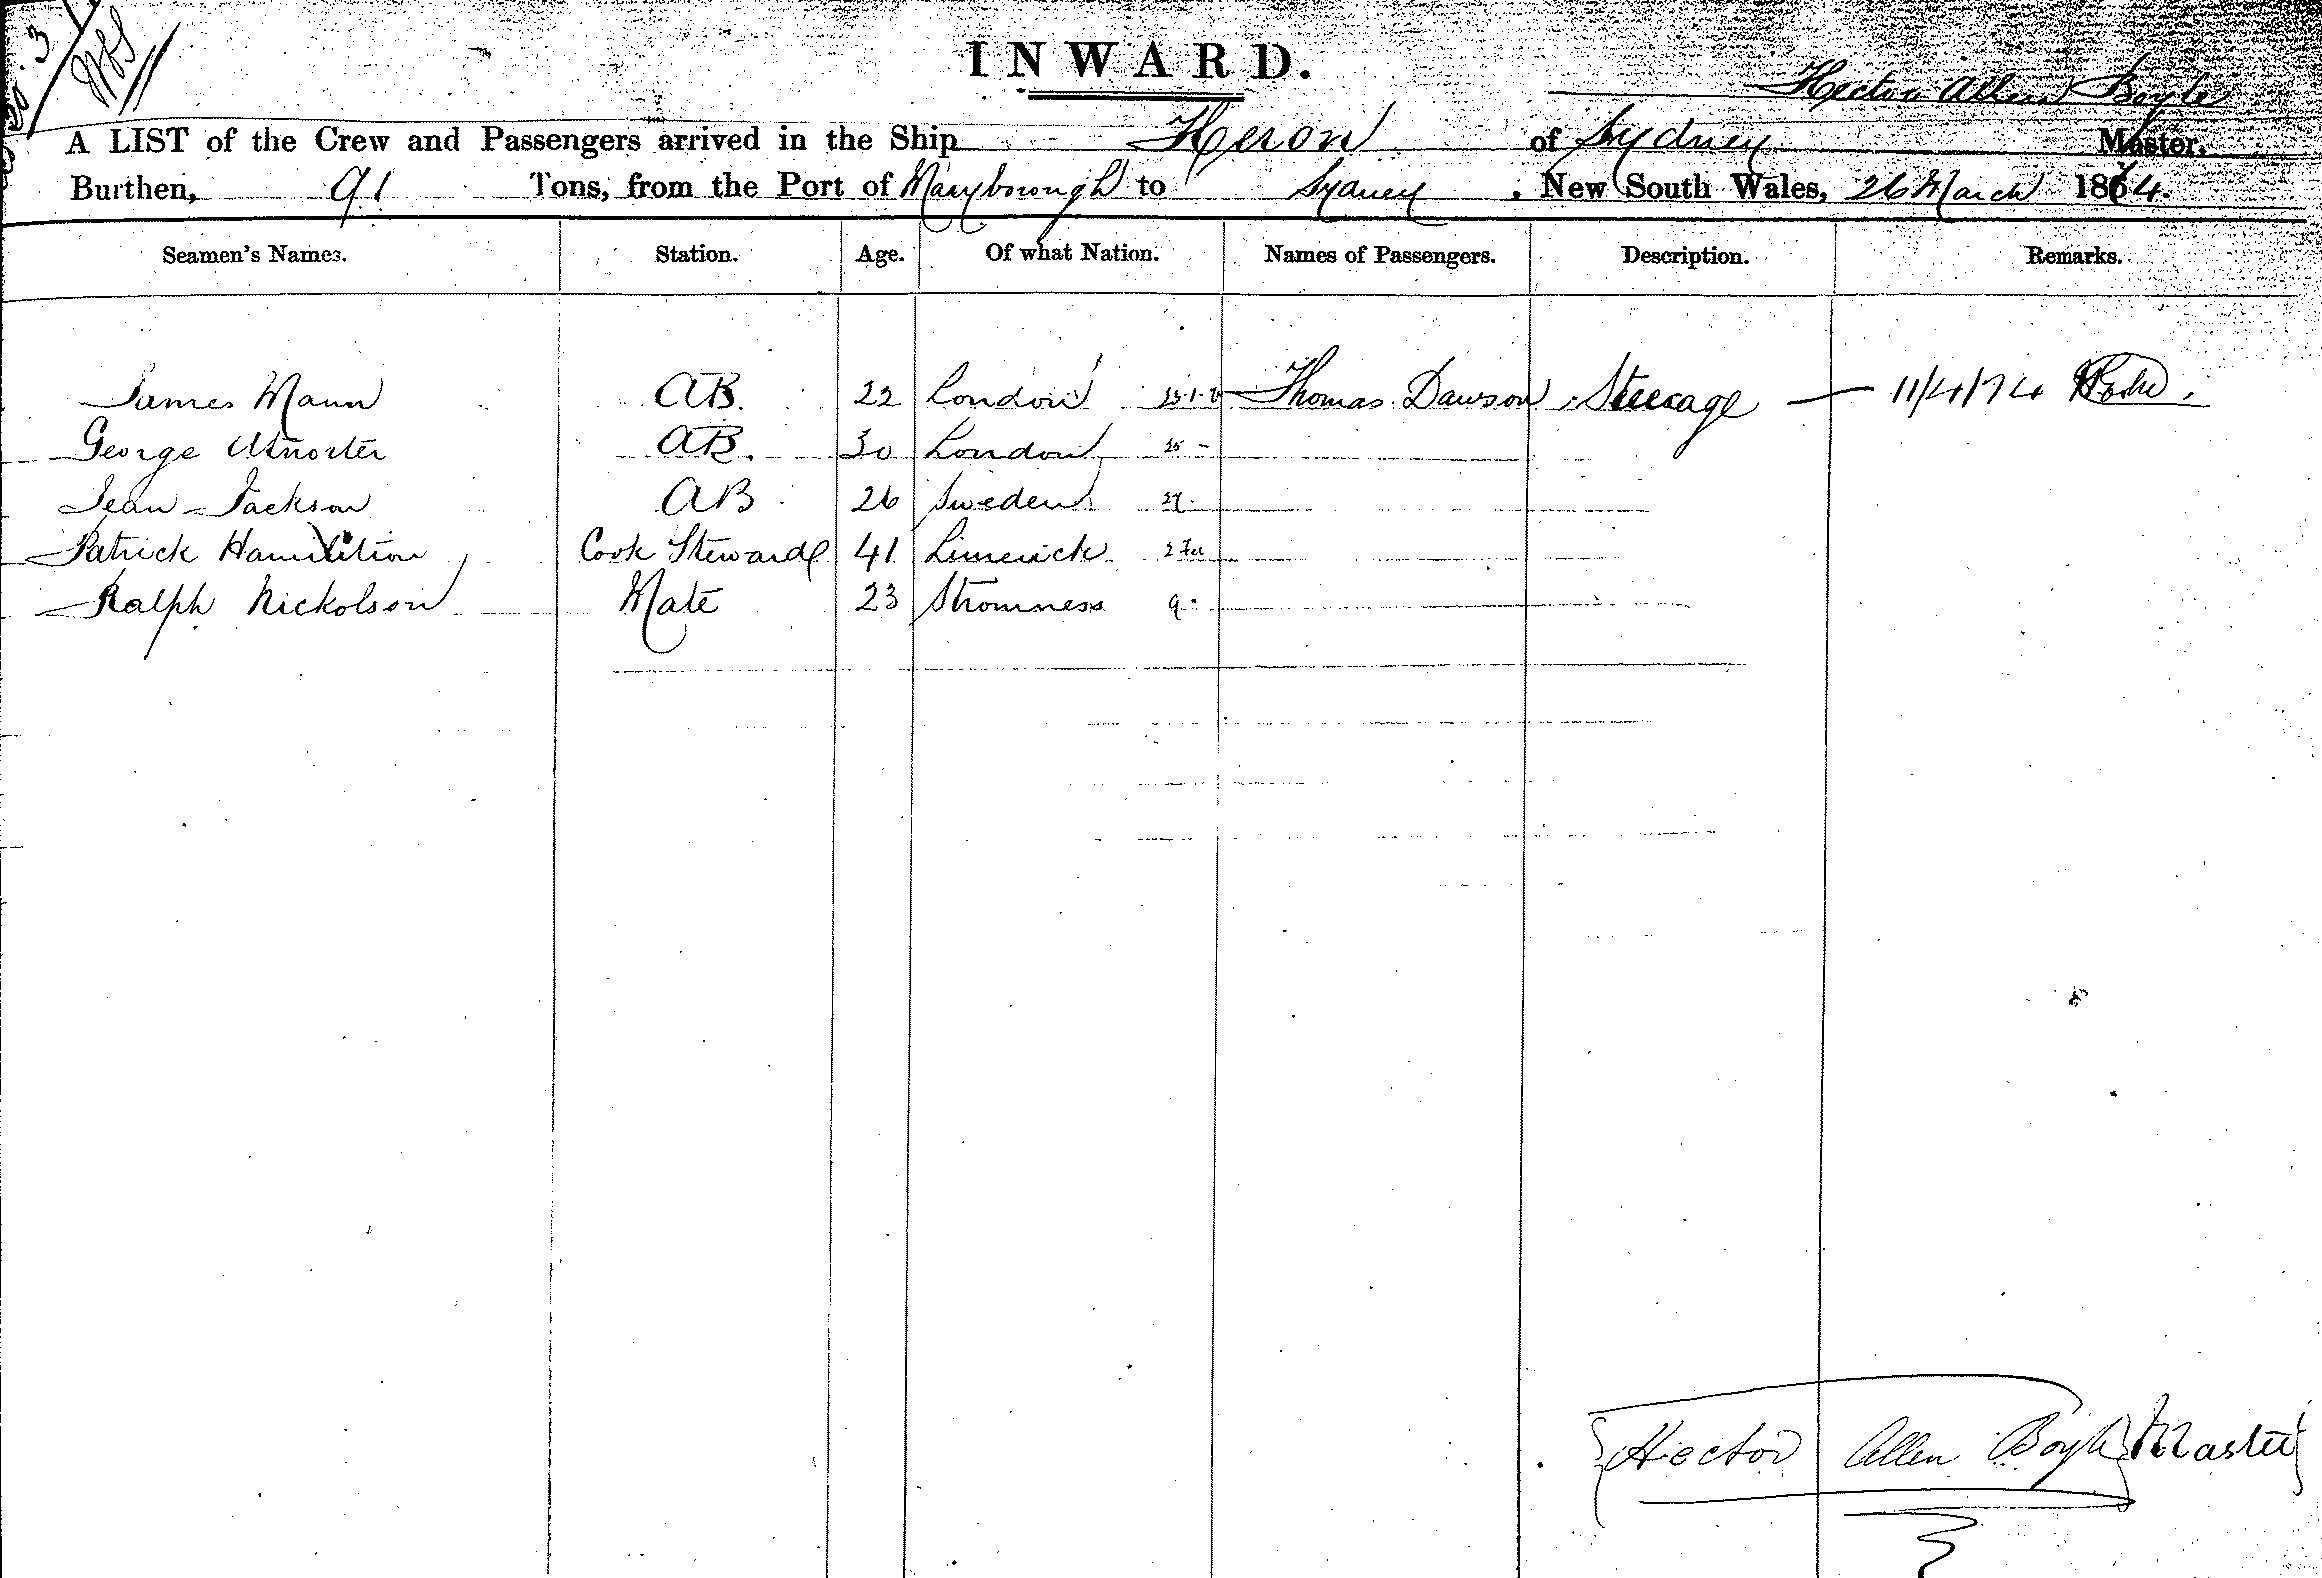 INWARD.
Hector Allen Boyle
A LIST of the Crew and Passengers arrived in the Ship Heron of Sydney Master,
Burthen, 91 Tons, from the Port of Maryborough to Sydney, New South Wales, 26 March 1874.
Seamen's Names. Station. Age. Of what Nation. Names of Passengers. Description. Remarks.
James Mann AB. 22 London Thomas Dawson Steerage — 11/4/74
George AB. 30 London
Jean Jackson AB 26 Sweden
Patrick Hamilition Cook Steward 41 Limerick
Ralph Nickolson Mate 23 Stromness 9
Hector Allen Boyle Master